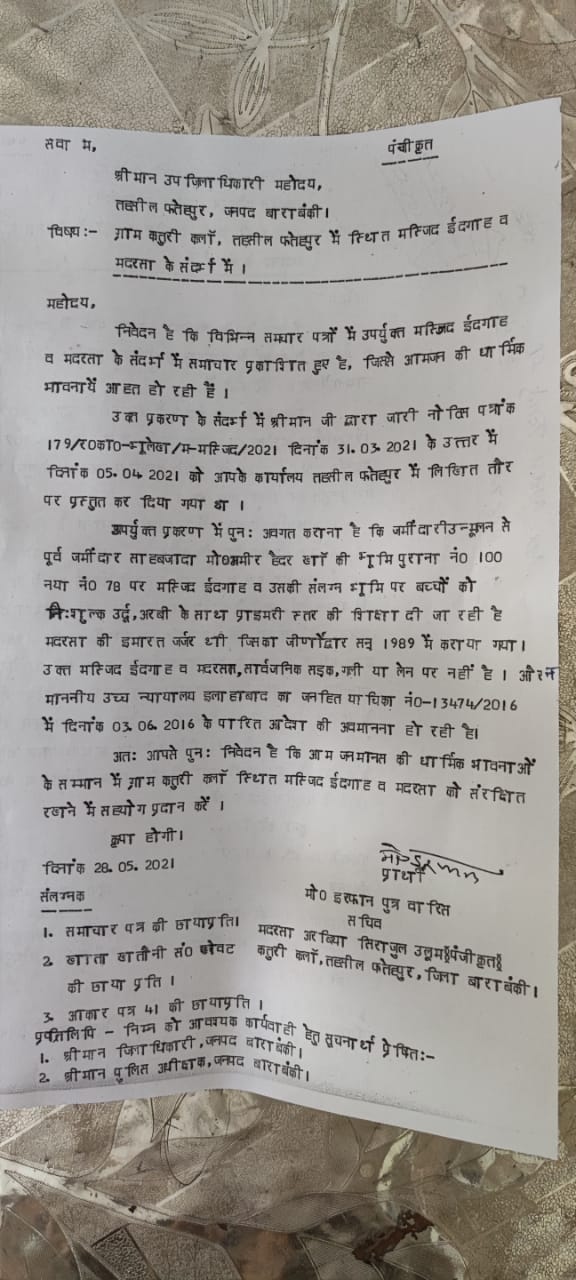 सेवा में,
पंचीकृत
श्रीमान उप जिलाधिकारी महोदय,
तहसील फतेहपुर, जनपद बाराबंकी।
विषय:- ग्राम कतुरी कलाँ, तहसील फतेहपुर में स्थित मस्जिद ईदगाह व
मदरसा के संदर्भ में ।
महोदय,
निवेदन है कि विभिन्न समचार पत्रों में उपर्युक्त मस्जिद ईदगाह
व मदरसा के संदर्भ में समाचार प्रकाशित हुए है, जिससे आमजन की धार्मिक
भावनायें आहत हो रही हैं ।
उक्त प्रकरण के संदर्भ में श्रीमान जी द्वारा जारी नोटिस पत्रांक
179/र0का0-भूलेख/म-मस्जिद/2021 दिनांक 31.03.2021 के उत्तर में
दिनांक 05.04.2021 को आपके कार्यालय तहसील फतेहपुर में लिखित तौर
पर प्रस्तुत कर दिया गया था ।
उपर्युक्त प्रकरण में पुन: अवगत कराना है कि जमींदारी उन्मूलन से
पूर्व जमींदार साहबजादा मो0अमीर हैदर खाँ की भूमि पुराना नं0 100
नया नं0 78 पर मस्जिद ईदगाह व उसकी संलग्न भूमि पर बच्चों को
नि:शुल्क उर्दू, अरबी के साथ प्राइमरी स्तर की शिक्षा दी जा रही है
मदरसा की इमारत जर्जर थी जिसका जीर्णोद्वार सन् 1989 में कराया गया।
उक्त मस्जिद ईदगाह व मदरसा, सार्वजनिक सड़क, गली या लेन पर नहीं है । और न
माननीय उच्च न्यायालय इलाहाबाद का जनहित याचिका नं0-13474/2016
में दिनांक 03.06.2016 के पारित आदेश की अवमानना हो रही है।
अत: आपसे पुन: निवेदन है कि आम जनमानस की धार्मिक भावनाओं
के सम्मान में ग्राम कतुरी कलाँ स्थित मस्जिद ईदगाह व मदरसा को संरक्षित
रखने में सहयोग प्रदान करें ।
कृपा होगी।
दिनांक 28.05.2021
प्रार्थी
संलग्नक
मो0 इरफान पुत्र वारिस
सचिव
1. समाचार पत्र की छायाप्रति।
मदरसा अरबिया सिराजुल उलूम§पंजीकृत§
2. खाता खतौनी सं0 खेवट
कतुरी कलाँ, तहसील फतेहपुर, जिला बाराबंकी।
की छाया प्रति ।
3. आकार पत्र 41 की छायाप्रति ।
प्रतिलिपि - निम्न को आवश्यक कार्यवाही हेतु सूचनार्थ प्रेषित:-
1. श्रीमान जिलाधिकारी, जनपद बाराबंकी।
2. श्रीमान पुलिस अधीक्षक, जनपद बाराबंकी।